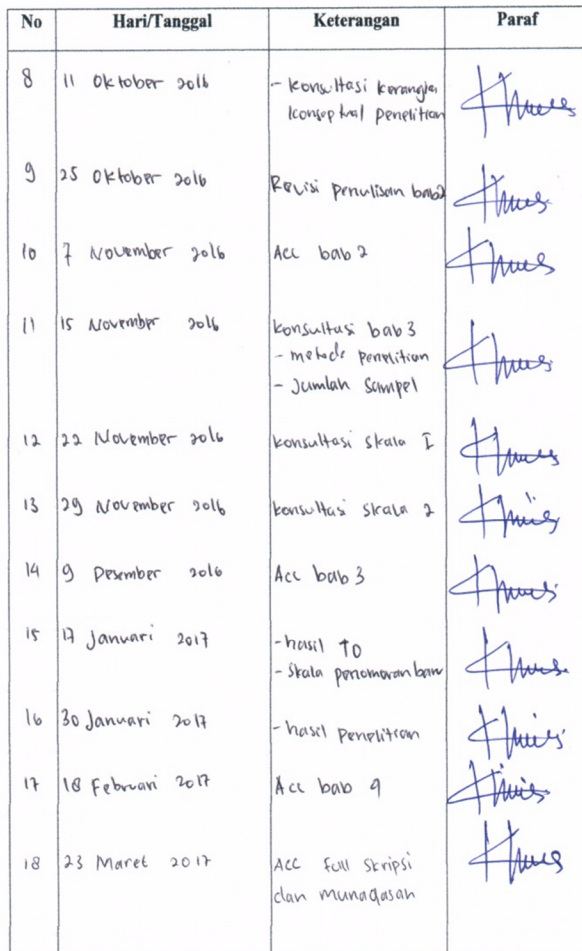 No Hari/Tanggal Keterangan Paraf
8 11 Oktober 2016 - Konsultasi kerangka
konseptual penelitian
9 25 Oktober 2016 Revisi penulisan bab2
10 7 November 2016 Acc bab 2
11 15 November 2016 konsultasi bab 3
- metode penelitian
- Jumlah Sampel
12 22 November 2016 konsultasi skala I
13 29 November 2016 konsultasi skala 2
14 9 Desember 2016 Acc bab 3
15 17 Januari 2017 - hasil TO
- Skala penomoran baru
16 30 Januari 2017 - hasil penelitian
17 18 Februari 2017 Acc bab 4
18 23 Maret 2017 Acc full skripsi
dan munaqasah